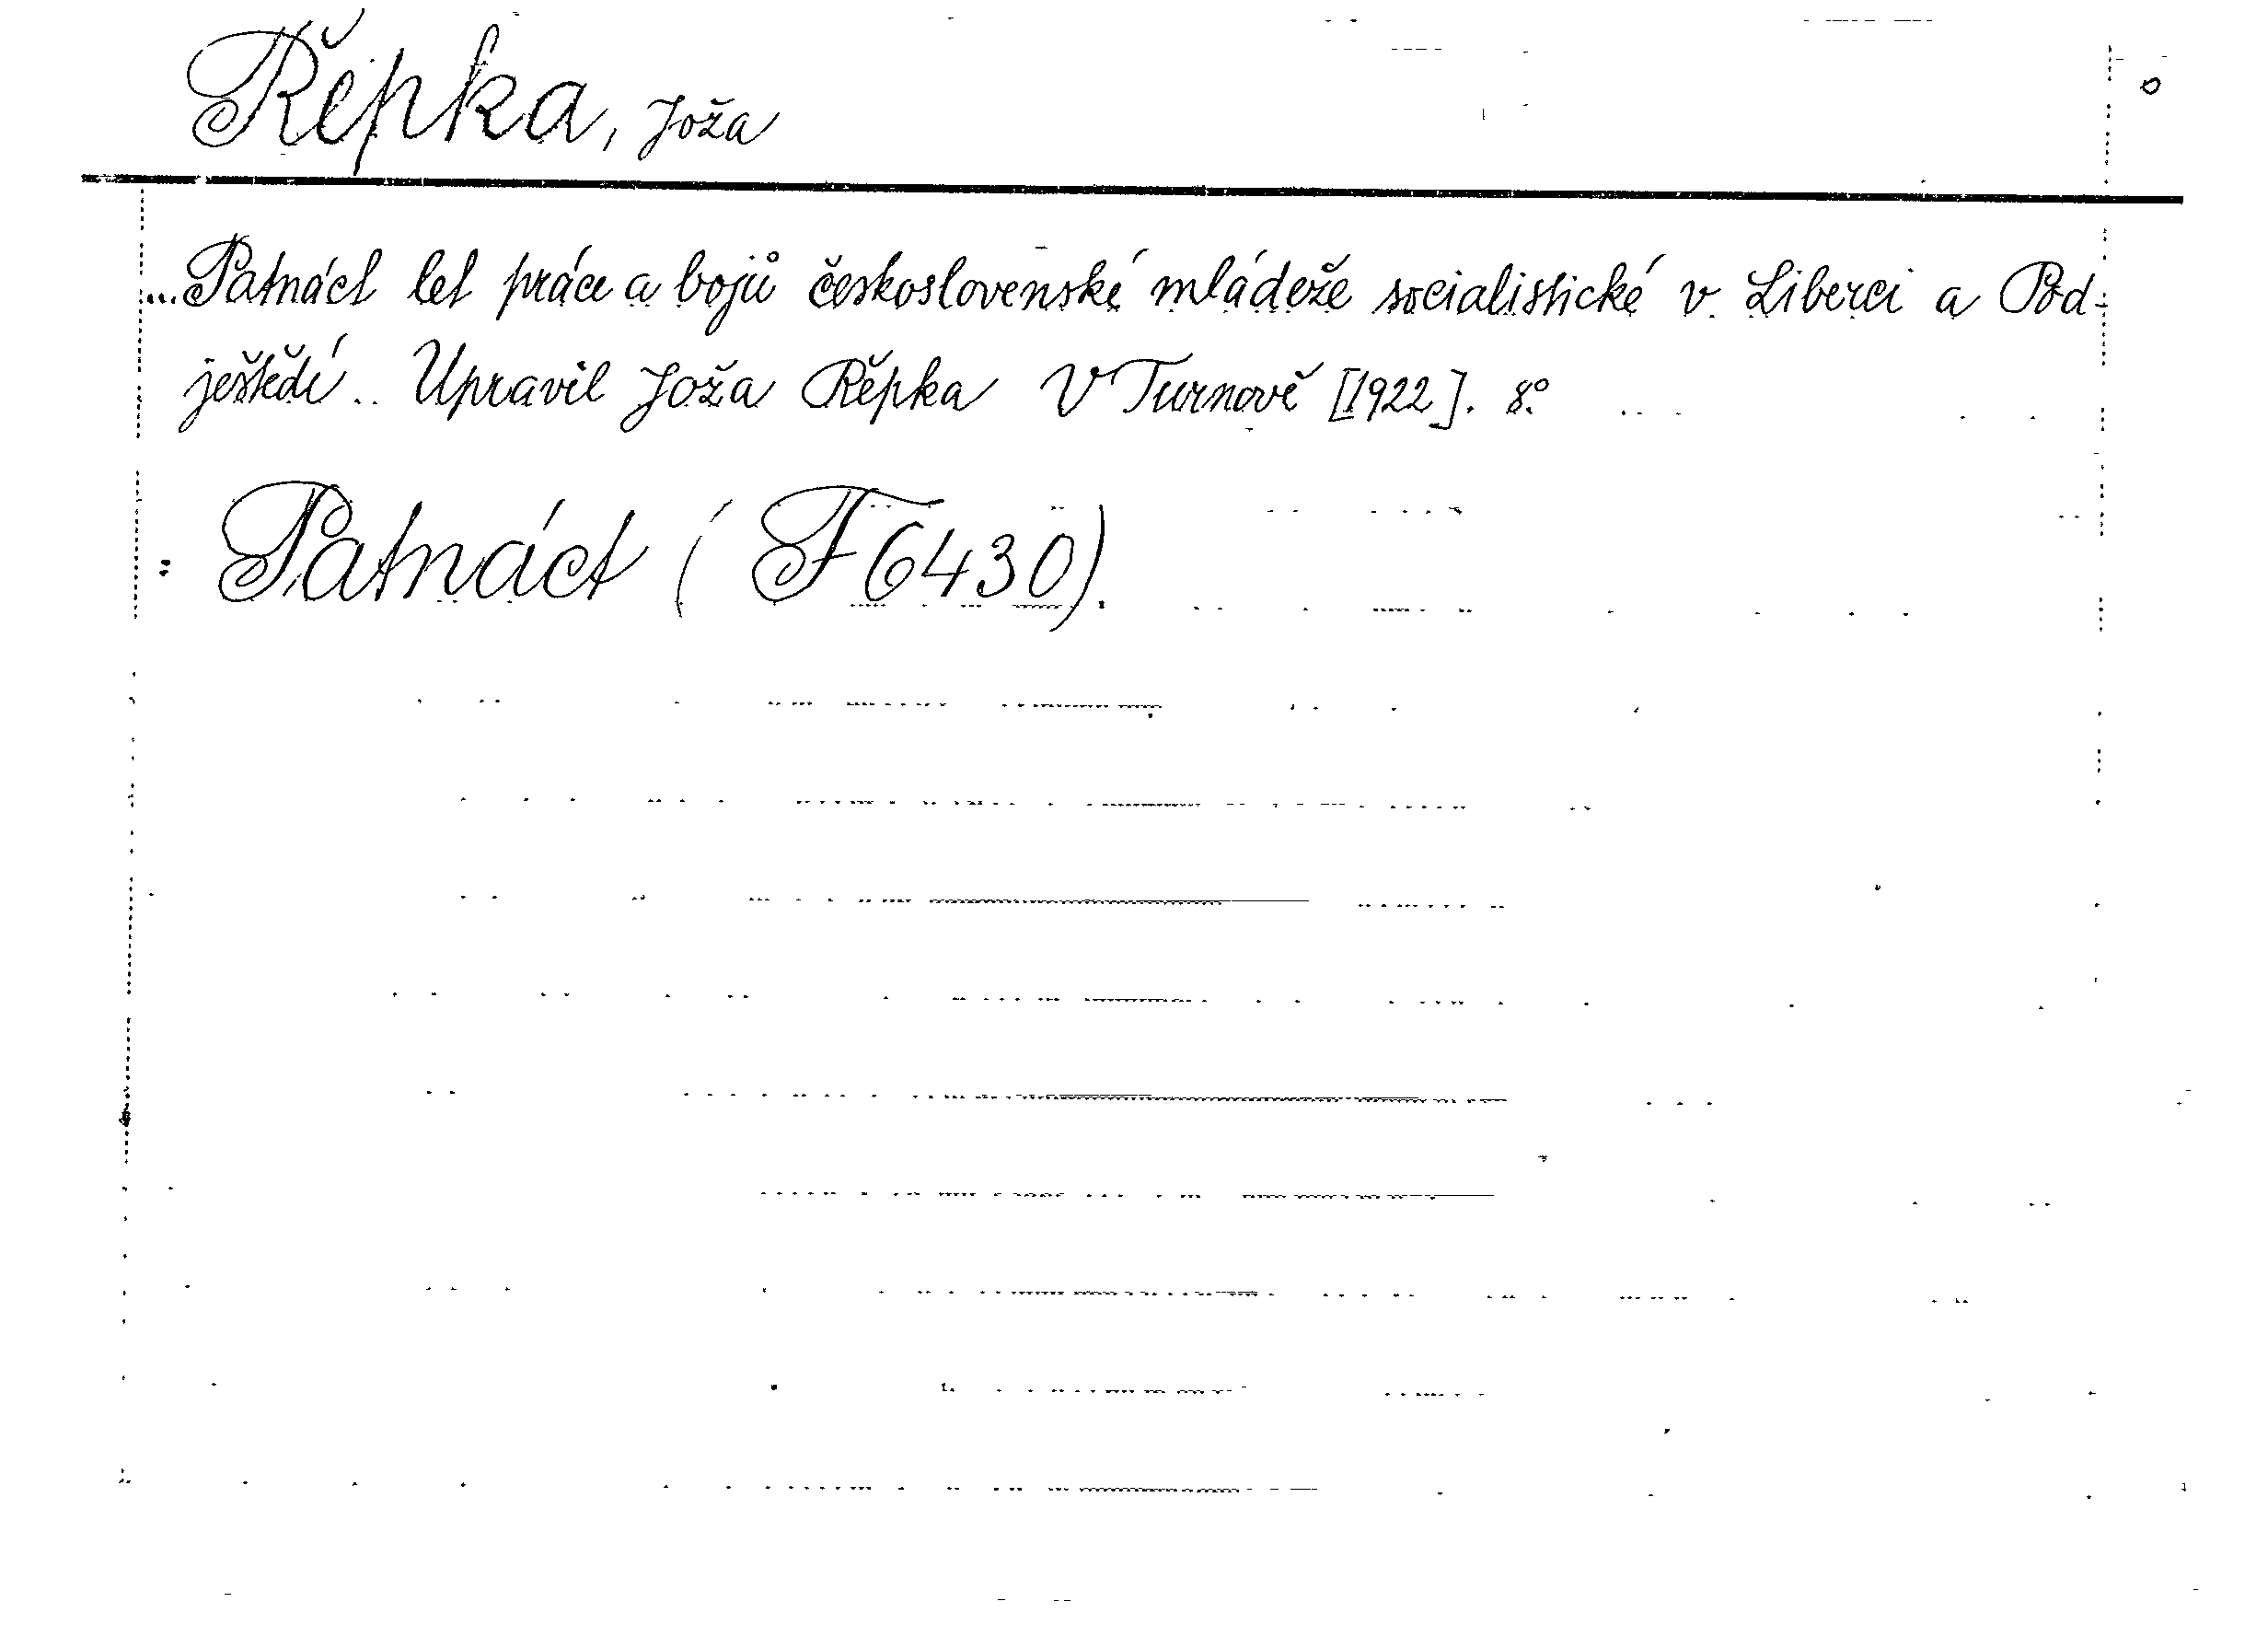 Řepka, Joža
...Patnáct let práce a bojů československé mládeže socialistické v Liberci a Pod-
ještědí.. Upravil Joža Řěpka V Turnově [1922]. 8º.
: Patnáct (F 6430).